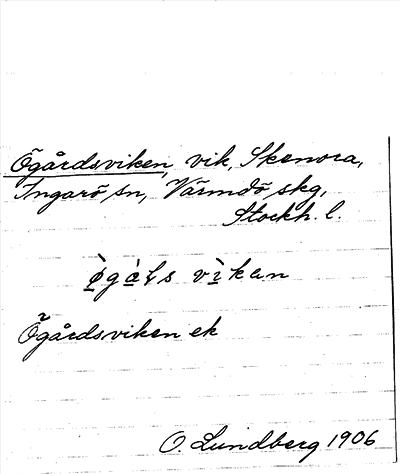 Ögårdsviken, vik, Skenora,
Ingarö sn, Värmdö skg,
Stockh. l.
ø̀gàɭs vìkan
Ögårdsviken ek
O. Lundberg 1906